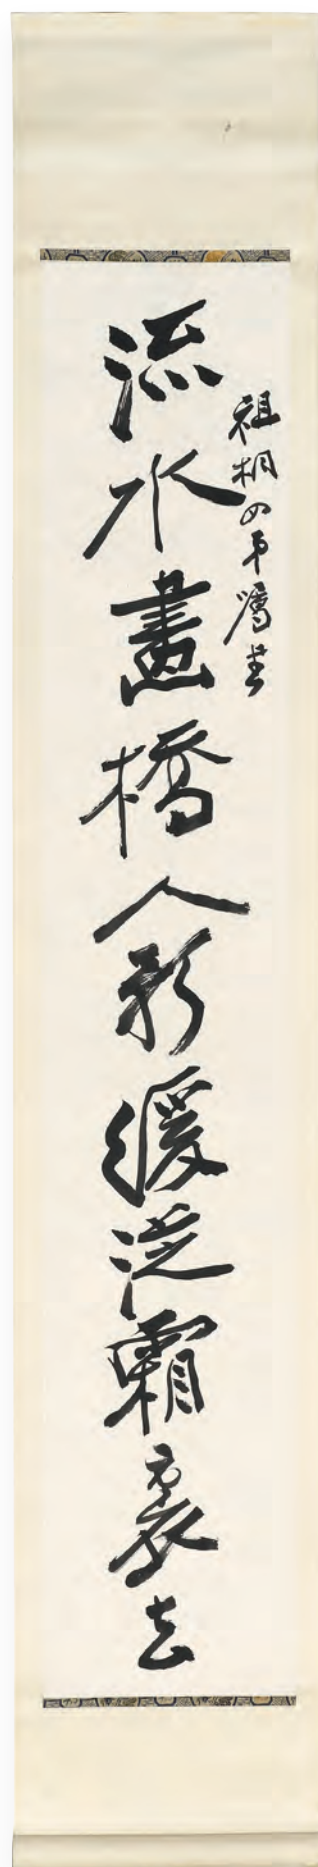 祖桐四弟囑書
流水畫橋人影緩從霜裏去